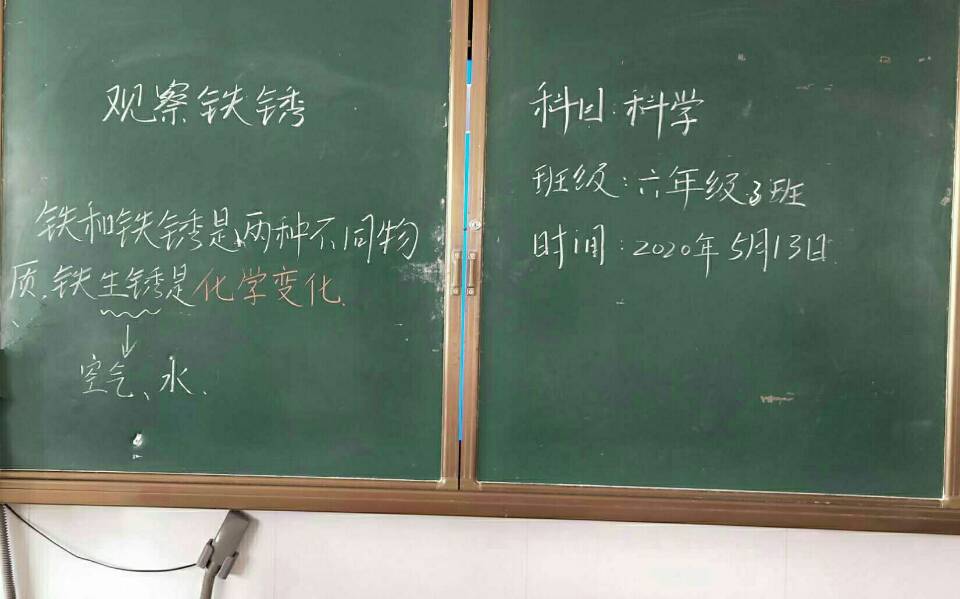 观察铁锈
铁和铁锈是两种不同物
质.铁生锈是化学变化.
空气、水.
科目:科学
班级:六年级3班
时间:2020年5月13日.